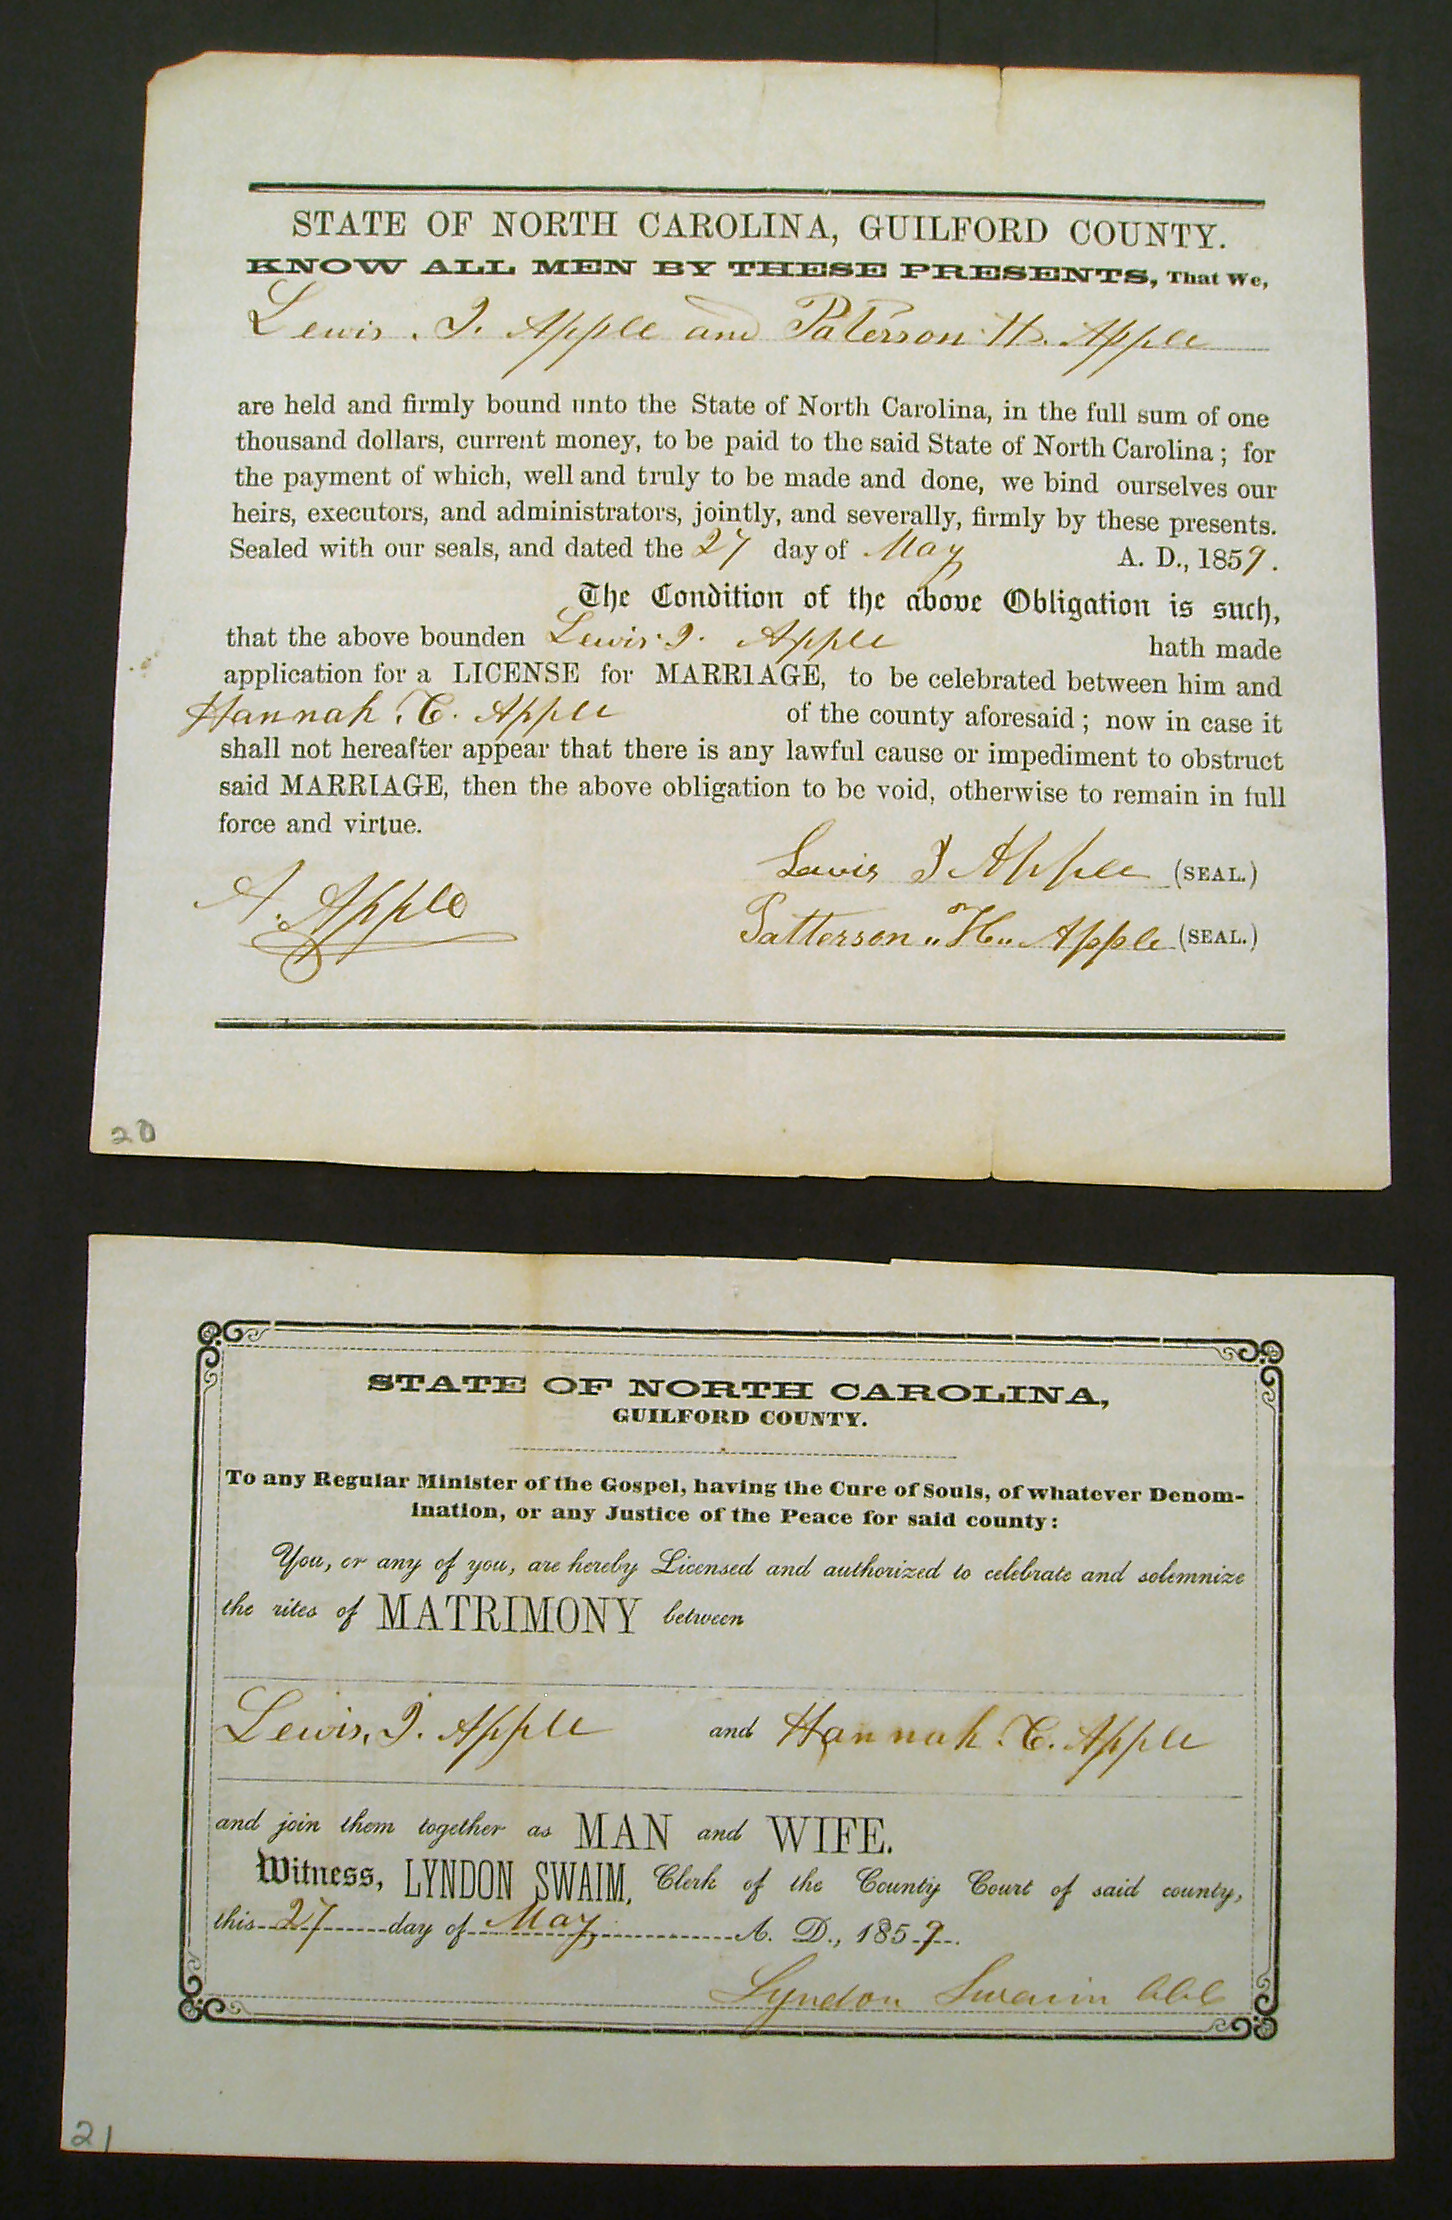 STATE OF NORTH CAROLINA, GUILFORD COUNTY.
KNOW ALL MEN BY THESE PRESENTS, That We,
Lewis. I. Apple and Paterson H. Apple
are held and firmly bound unto the State of North Carolina, in the full sum of one
thousand dollars, current money, to be paid to the said State of North Carolina; for
the payment of which, well and truly to be made and done, we bind ourselves our
heirs, executors, and administrators, jointly, and severally, firmly by these presents.
Sealed with our seals, and dated the 27 day of May A. D., 1859.
The Condition of the above Obligation is such,
that the above bounden Lewis I. Apple hath made
application for a LICENSE for MARRIAGE, to be celebrated between him and
Hannah. C. Apple of the county aforesaid; now in case it
shall not hereafter appear that there is any lawful cause or impediment to obstruct
said MARRIAGE, then the above obligation to be void, otherwise to remain in full
force and virtue.
Lewis I Apple (SEAL.)
A. Apple
Patterson "H" Apple (SEAL.)
20
STATE OF NORTH CAROLINA,
GUILFORD COUNTY.
To any Regular Minister of the Gospel, having the Cure of Souls, of whatever Denom-
ination, or any Justice of the Peace for said county:
You, or any of you, are hereby Licensed and authorized to celebrate and solemnize
the rites of MATRIMONY between
Lewis, I. Apple and Hannah. C. Apple
and join them together as MAN and WIFE.
Witness, LYNDON SWAIM, Clerk of the County Court of said county,
this 27 day of May A. D., 1859.
Lyndon Swaim CCC
21